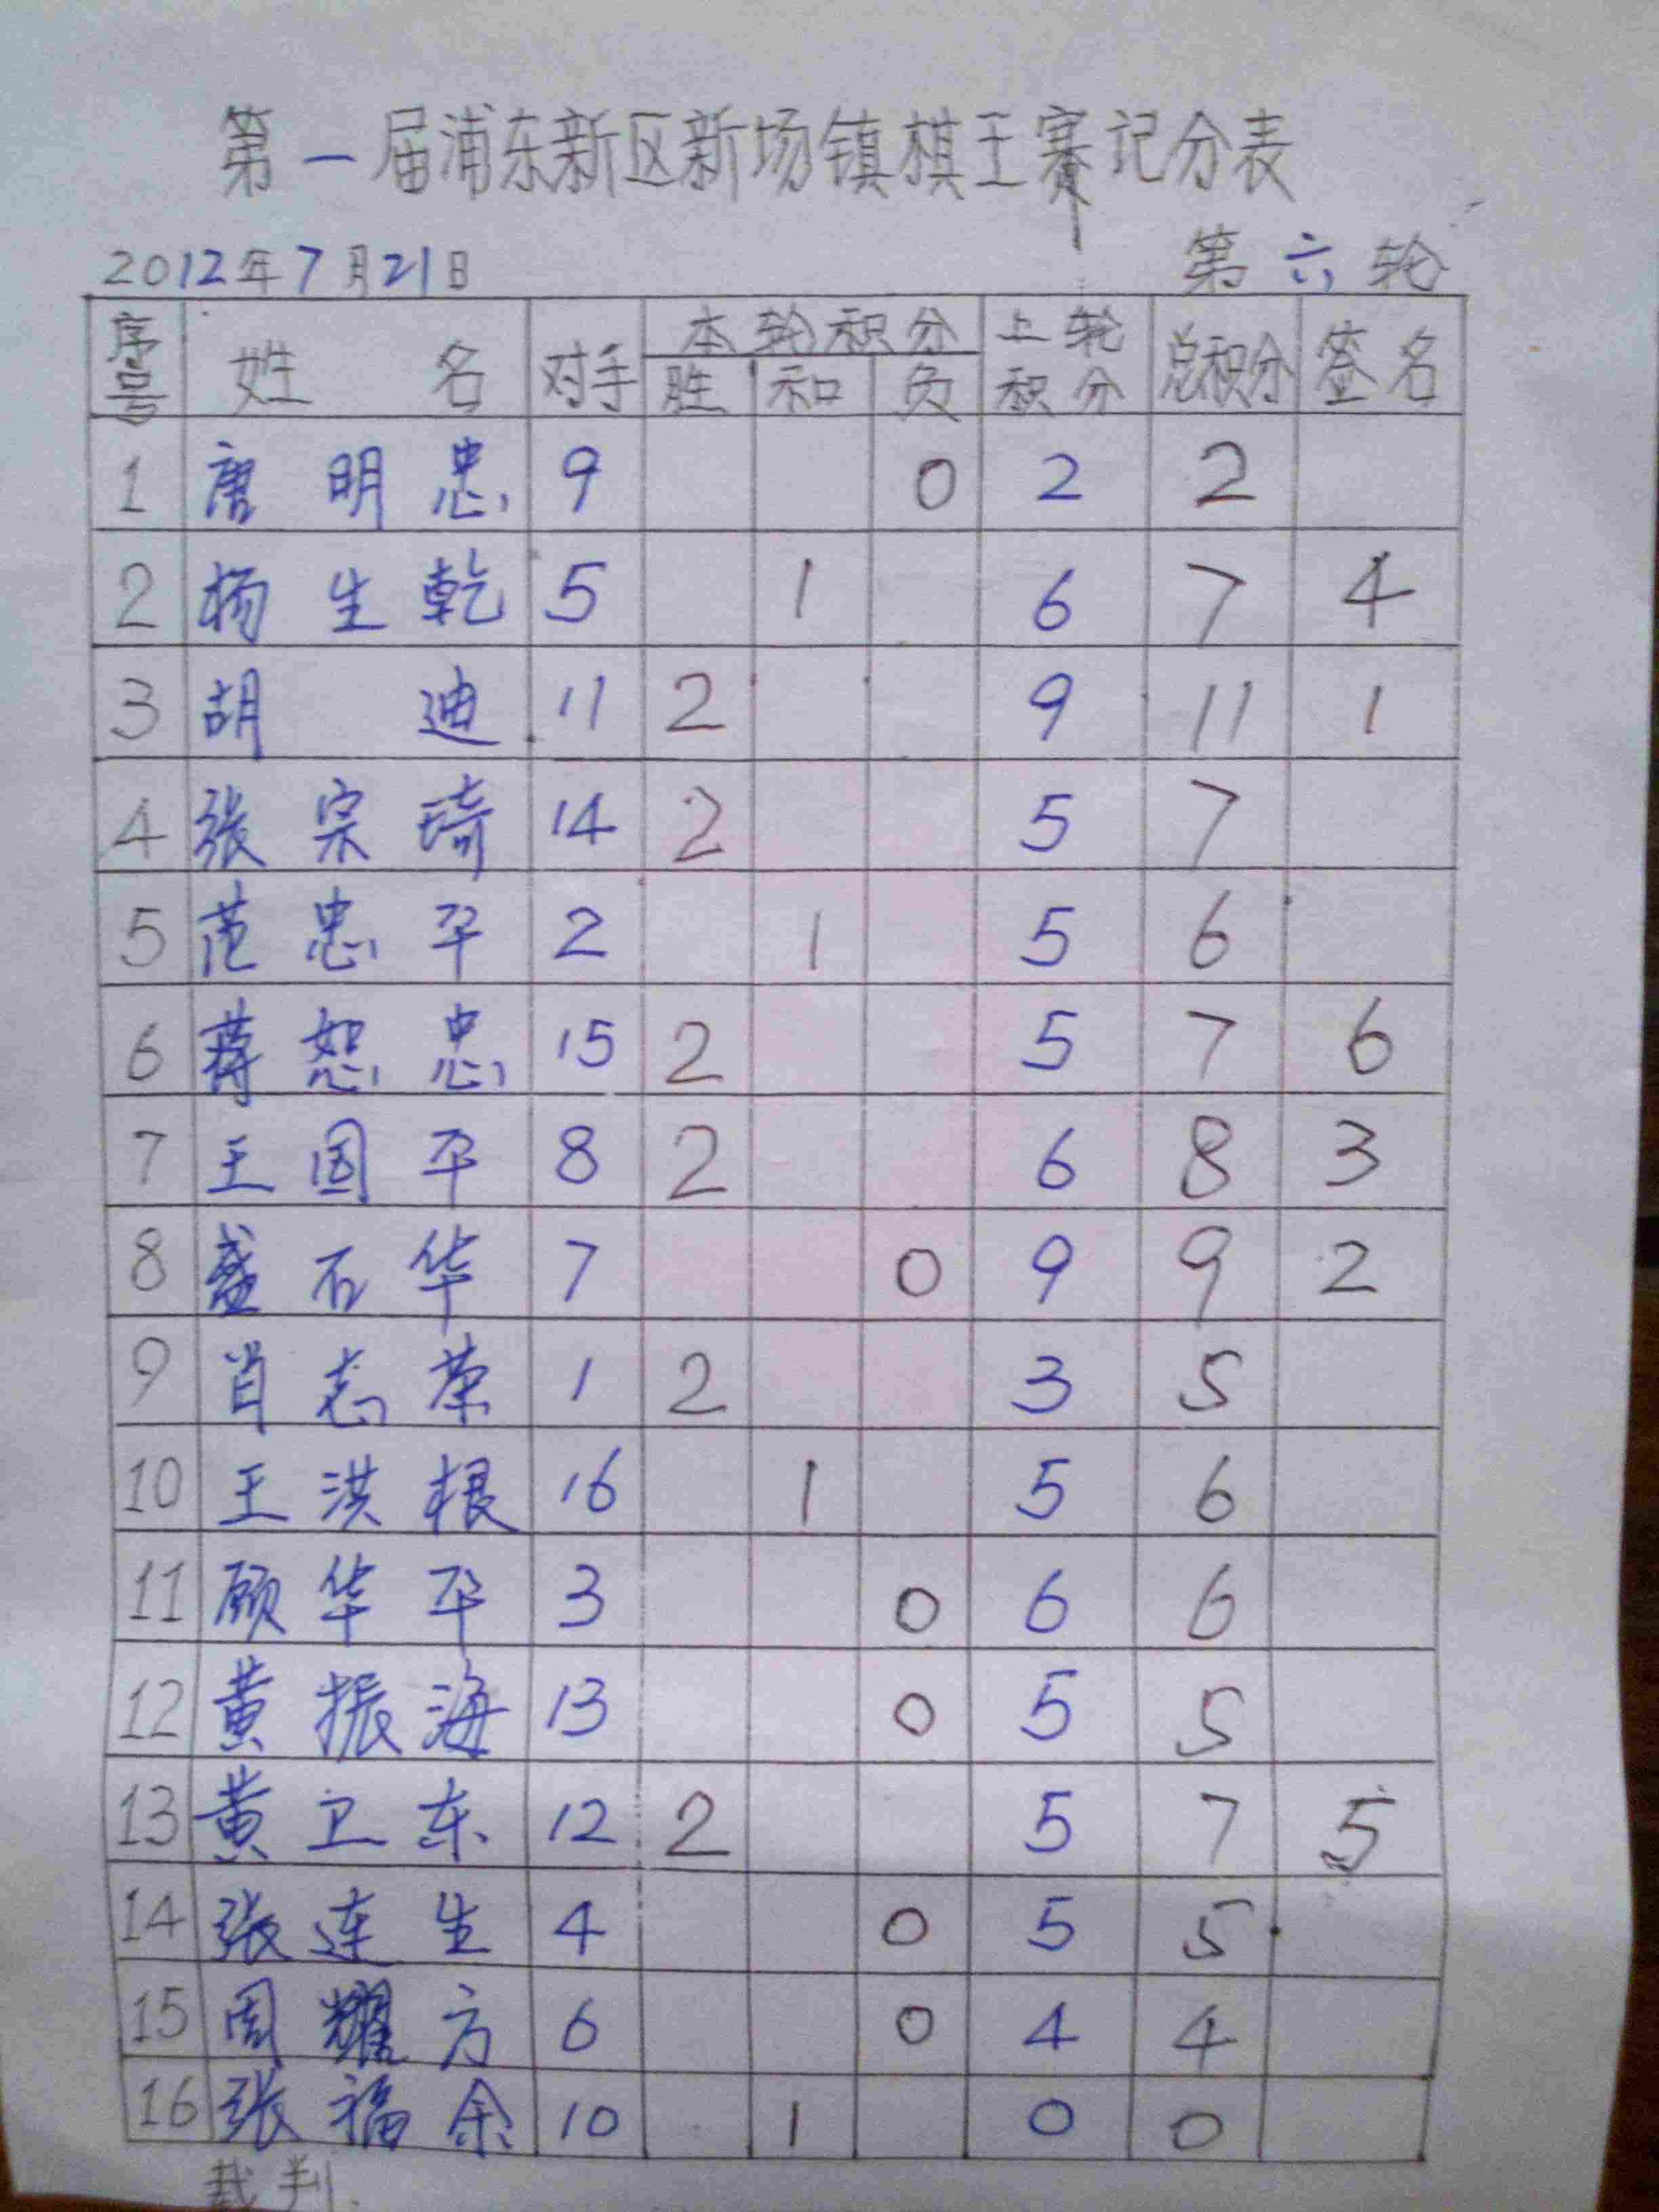 第一届浦东新区新场镇棋王赛记分表
2012年7月21日 第六轮
序号 姓名 对手 本轮积分 胜 和 负 上轮积分 总积分 签名
1 唐明忠 9 0 2 2
2 杨生乾 5 1 6 7 4
3 胡迪 11 2 9 11 1
4 张宗琦 14 2 5 7
5 范忠平 2 1 5 6
6 蒋恕忠 15 2 5 7 6
7 王国平 8 2 6 8 3
8 盛石华 7 0 9 9 2
9 肖志荣 1 2 3 5
10 王洪根 16 1 5 6
11 顾华平 3 0 6 6
12 黄振海 13 0 5 5
13 黄卫东 12 2 5 7 5
14 张连生 4 0 5 5
15 周耀方 6 0 4 4
16 张福余 10 1 0 0
裁判